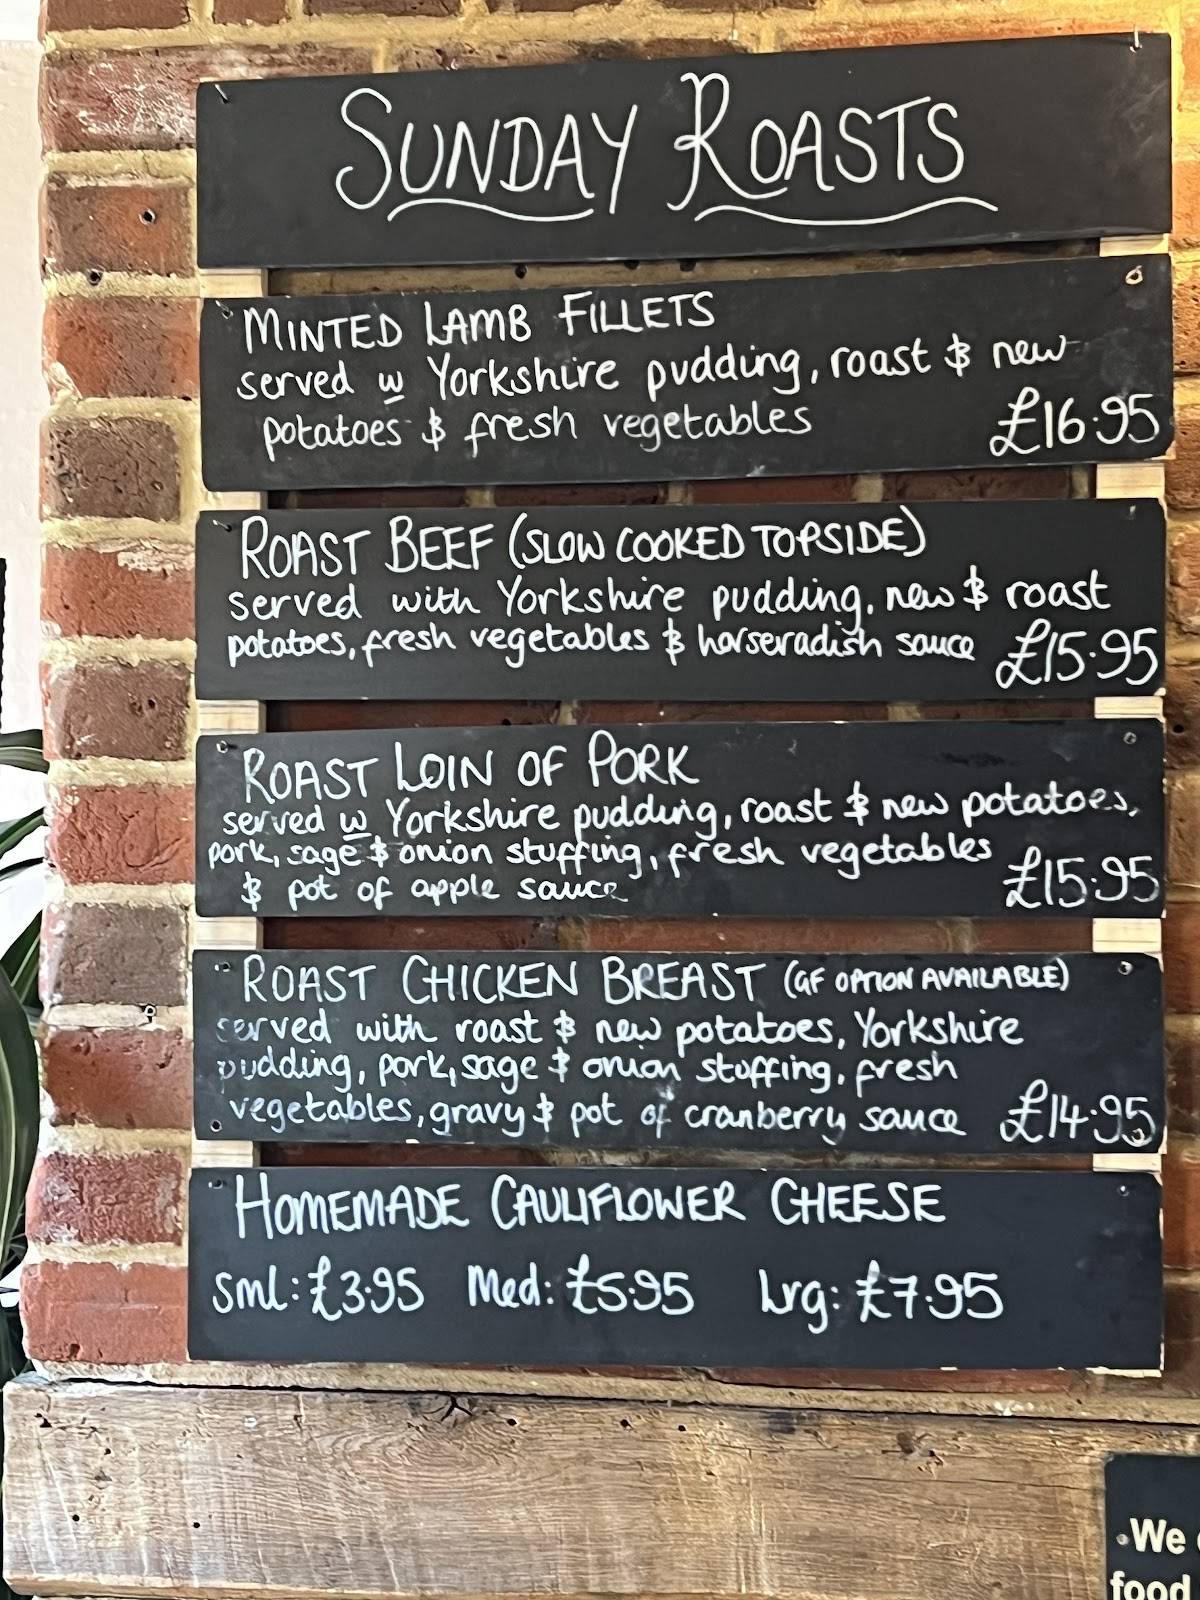 SUNDAY ROASTS
MINTED LAMB FILLETS
served w Yorkshire pudding, roast & new
potatoes & fresh vegetables £16.95
ROAST BEEF (SLOW COOKED TOPSIDE)
served with Yorkshire pudding, new & roast
potatoes, fresh vegetables & horseradish sauce £15.95
ROAST LOIN OF PORK
served w Yorkshire pudding, roast & new potatoes,
pork, sage & onion stuffing, fresh vegetables
& pot of apple sauce £15.95
ROAST CHICKEN BREAST (GF OPTION AVAILABLE)
served with roast & new potatoes, Yorkshire
pudding, pork, sage & onion stuffing, fresh
vegetables, gravy & pot of cranberry sauce £14.95
HOMEMADE CAULIFLOWER CHEESE
Sml: £3.95 Med: £5.95 Lrg: £7.95
We
food